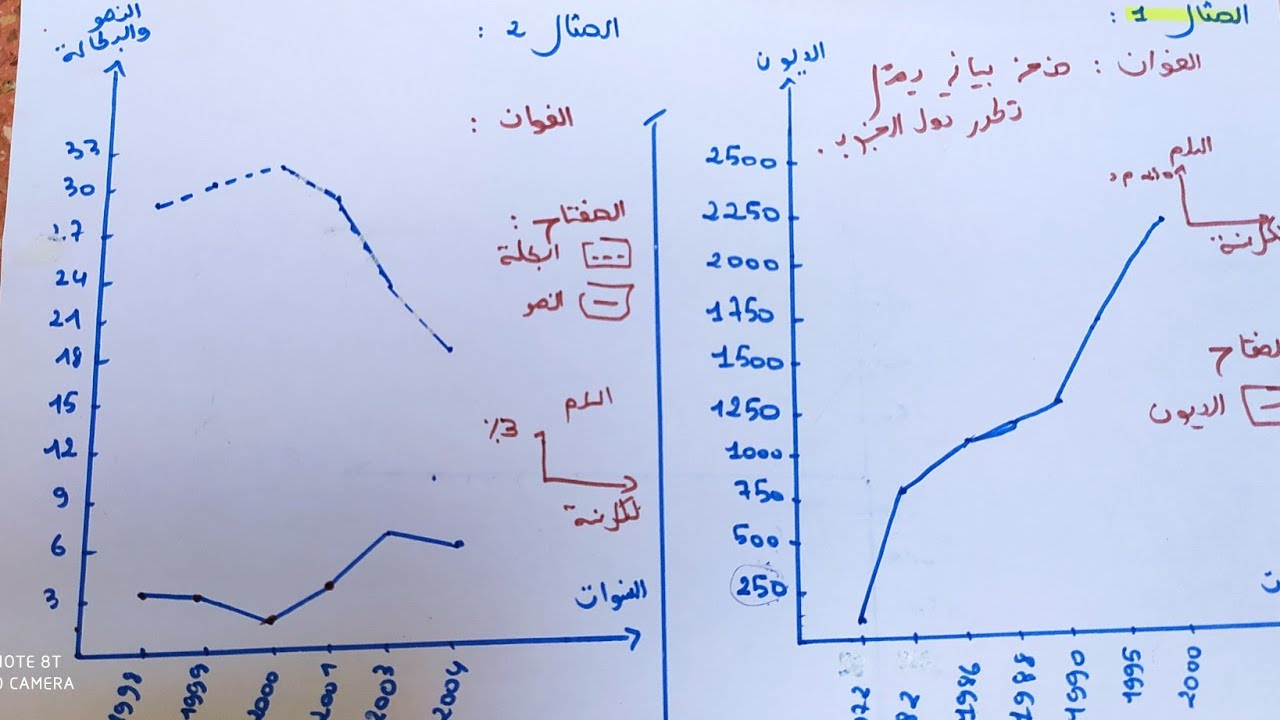 المثال 1 :
العنوان : منحنى بياني يمثل
تطور
الديون
2500
2250
2000
1750
1500
1250
1000
750
500
250
السلم
لكل سنة
المفتاح
الديون
1986
1988
1990
1995
2000
المثال 2 :
العنوان :
المفتاح :
البطالة
النمو
السلم
3٪
لكل سنة
السنوات
النمو
والبطالة
33
30
27
24
21
18
15
12
9
6
3
1998
1999
2000
2001
2003
2004
NOTE 8T
CAMERA